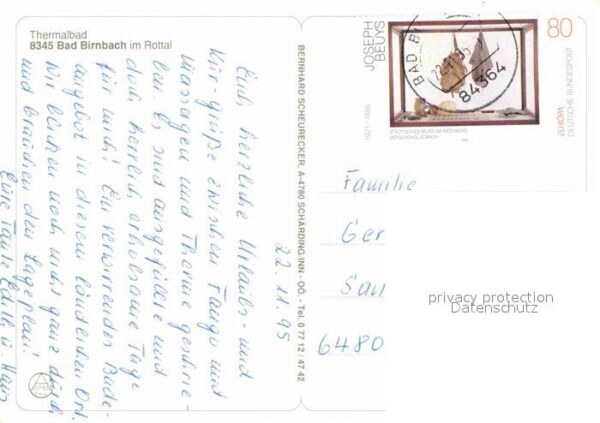 Thermalbad
8345 Bad Birnbach im Rottal
Euch herzliche Urlaubs- und
Kur-grüße zwischen Fango und
Massagen und Therme geschrie-
ben. Es sind ausgefüllte und
doch herrlich erholsame Tage
für uns! Ein verwirrendes Bade-
angebot in diesem ländlichen Ort.
Wir blicken noch nicht ganz durch
und brauchen den Lageplan!
Eure Tante Edith u. Hans
22.11.95
BERNHARD SCHEURECKER, A-4780 SCHÄRDING/INN - OÖ. - Tel. 0 77 12 / 47 42
JOSEPH
BEUYS
1921 - 1986
80
STÄDTISCHES MUSEUM ABTEIBERG
MÖNCHENGLADBACH
EUROPA
DEUTSCHE BUNDESPOST
BAD B
84364
Familie
Ger
San
6480
privacy protection
Datenschutz